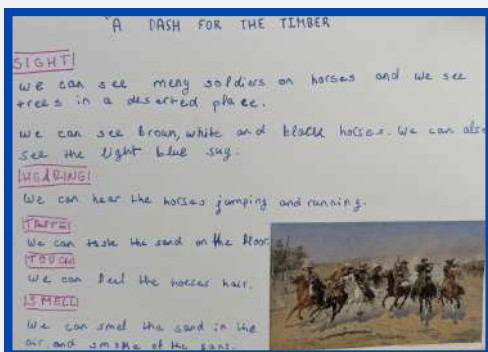 A DASH FOR THE TIMBER
SIGHT
We can see meny soldiers on horses and we see
trees in a deserted place.
We can see brown, white and black horses. We can also
see the light blue say.
HEARING
We can hear the horses jumping and running.
TASTE
We can taste the sand on the floor.
TOUCH
We can feel the horses hair.
SMELL
We can smel the sand in the
air and smoke of the